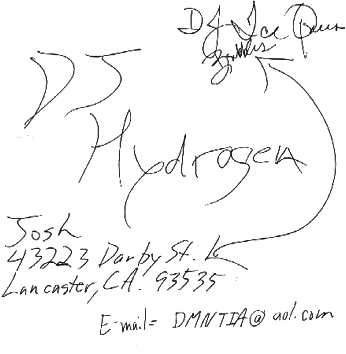 DJ Ice Queen
DJ
Hydrogen
Josh
43223 Danby St.
Lancaster, CA. 93535
E-mail= DMNTIA@aol.com